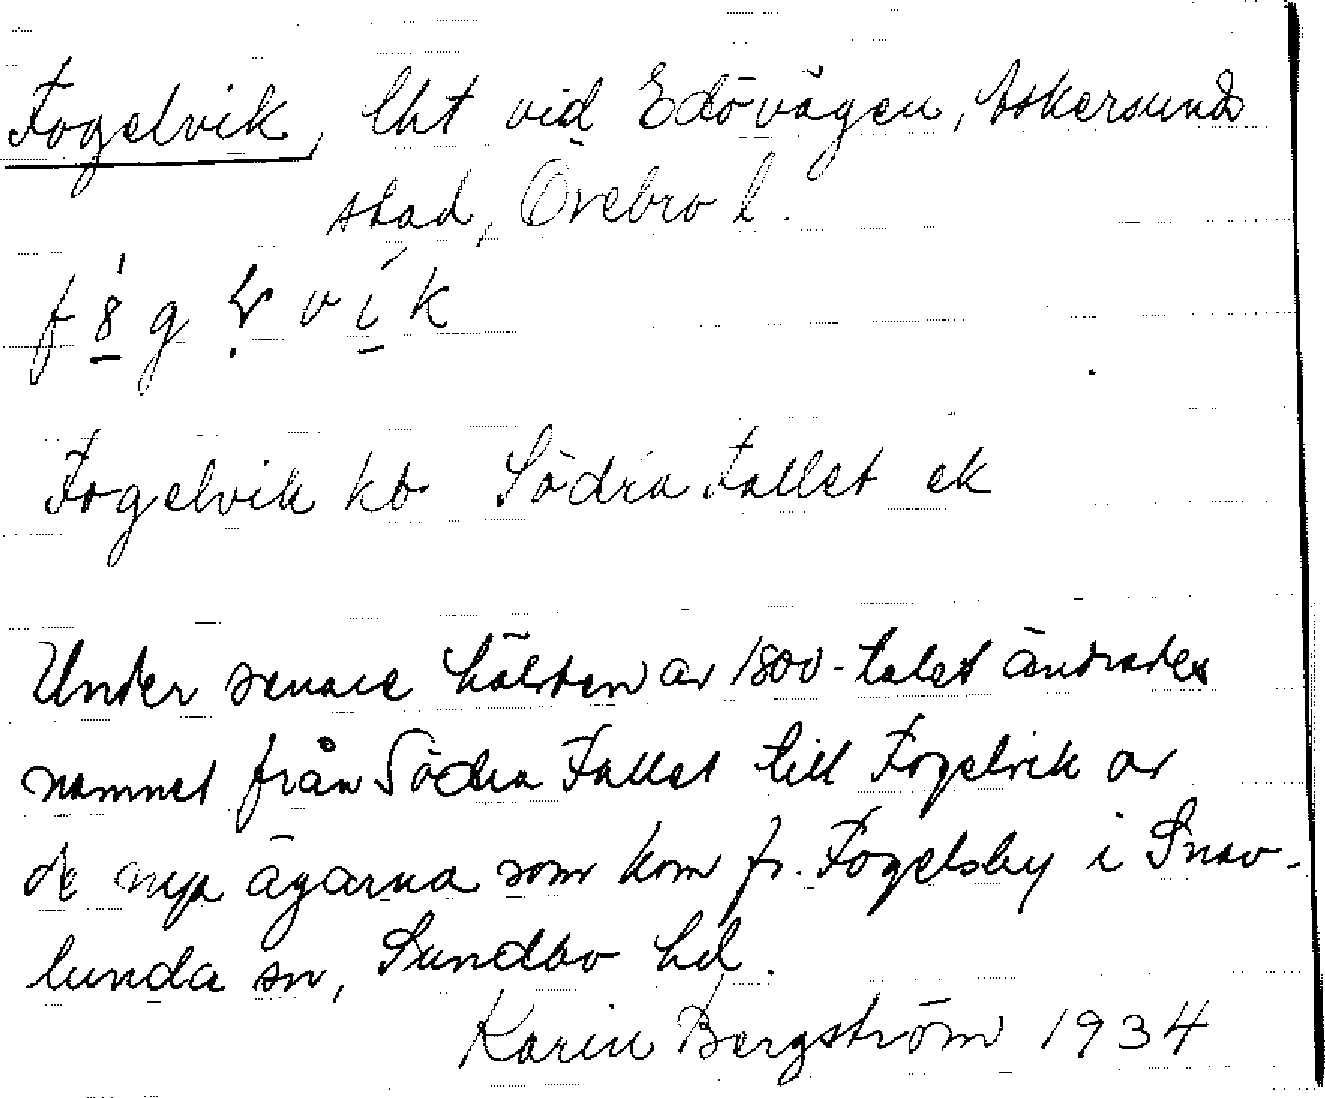 Fogelvik, lht vid Edövägen, Askersunds
stad, Örebro l.
Fogelvik kb Södra Fallet ek
Under senare hälvten av 1800-talet ändrades
namnet från Södra Fallet till Fogelvik av
de nya ägarna som kom fr. Fogelsby i Snav-
lunda sn, Sundbo hd.
Karin Bergström 1934